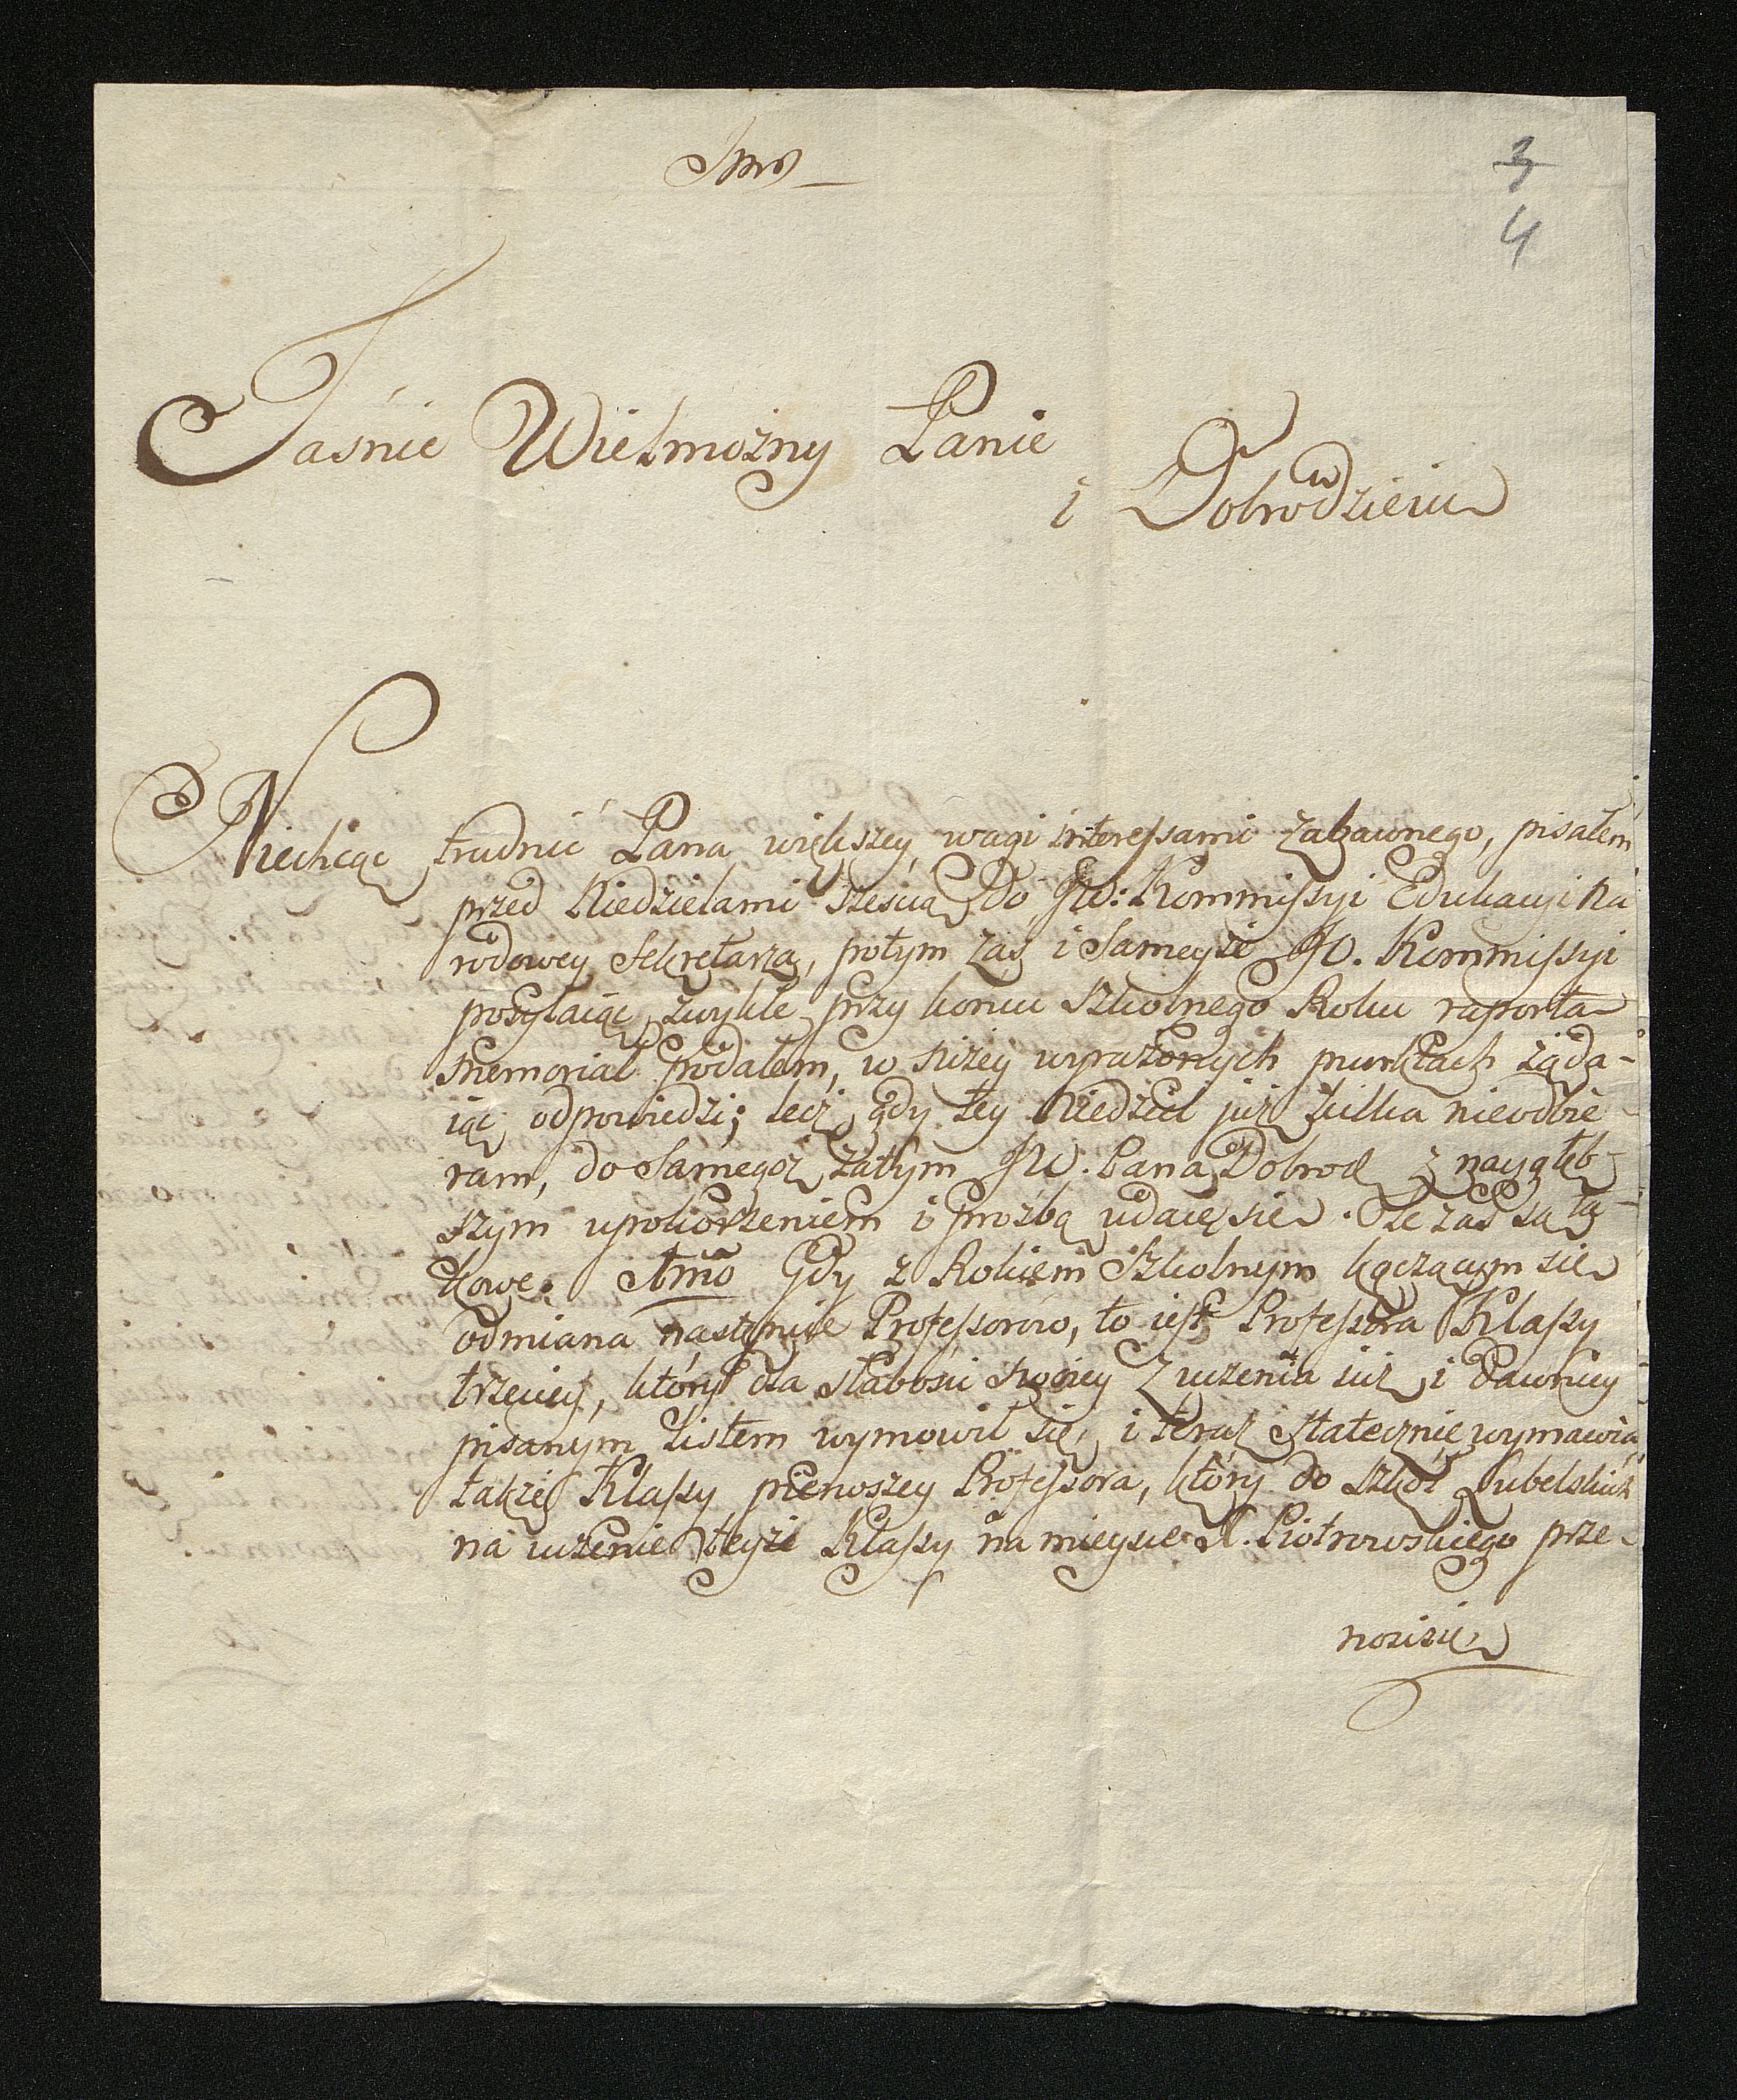 3
4
Jaśnie Wielmożny Panie
i Dobrodzieiu
Niechcąc trudnić Pana większey wagi interessami zabawnego, pisałem
przed Niedzielami sześcią do JW: Kommissyi Edukacyi Na
rodowey Sekretarza, potym zaś i sameyże JO. Kommissyi
posyłaiąc zwykłe przy końcu szkolnego Roku raporta
memoriał podałem, w niżey wyrażonych punktach żąda-
iąc odpowiedzi; lecz gdy tey Niedziel już kilka nieodbie-
ram, do samegoż zatym JW. Pana Dobrod z naygłęb-
szym upokorzeniem i prożbą udaię się. Te zaś są ta-
kowe. Imo Gdy z Rokiem Szkolnym kączącym się
odmiana nastąpiie Professorów, to iest Professora Klassy
trzeciey, który dla słabości swoiey z uczenia już i dawniey
pisanym listem wymowił się, i teraz statecznie wymawia,
także Klassy pierwszey Professora, który do szkół Lubelskich
na uczenie teyże Klassy na mieysce X. Piotrowskiego prze-
nosi się